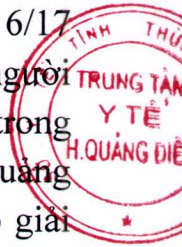 6/17
người
trong
uảng
giải
TỈNH THỪ
TRUNG TÂM
Y TẾ
H.QUẢNG ĐIỀ